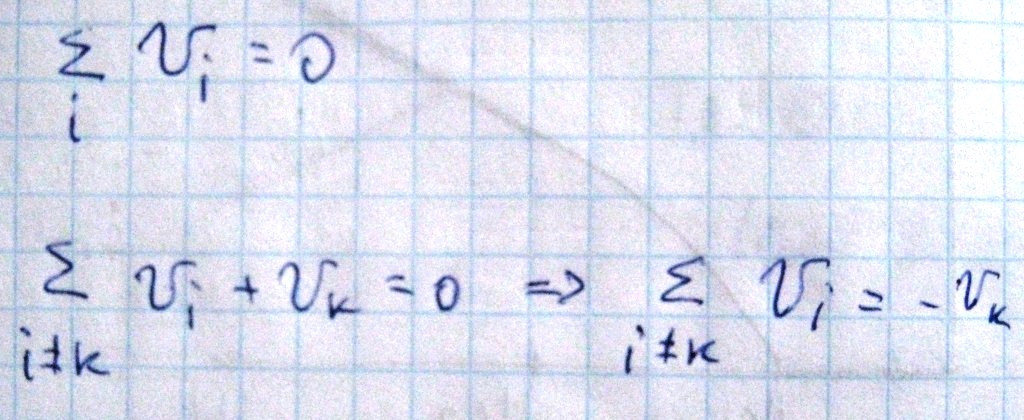 ∑ᵢ vᵢ = 0
∑_{i≠k} vᵢ + vₖ = 0 => ∑_{i≠k} vᵢ = -vₖ